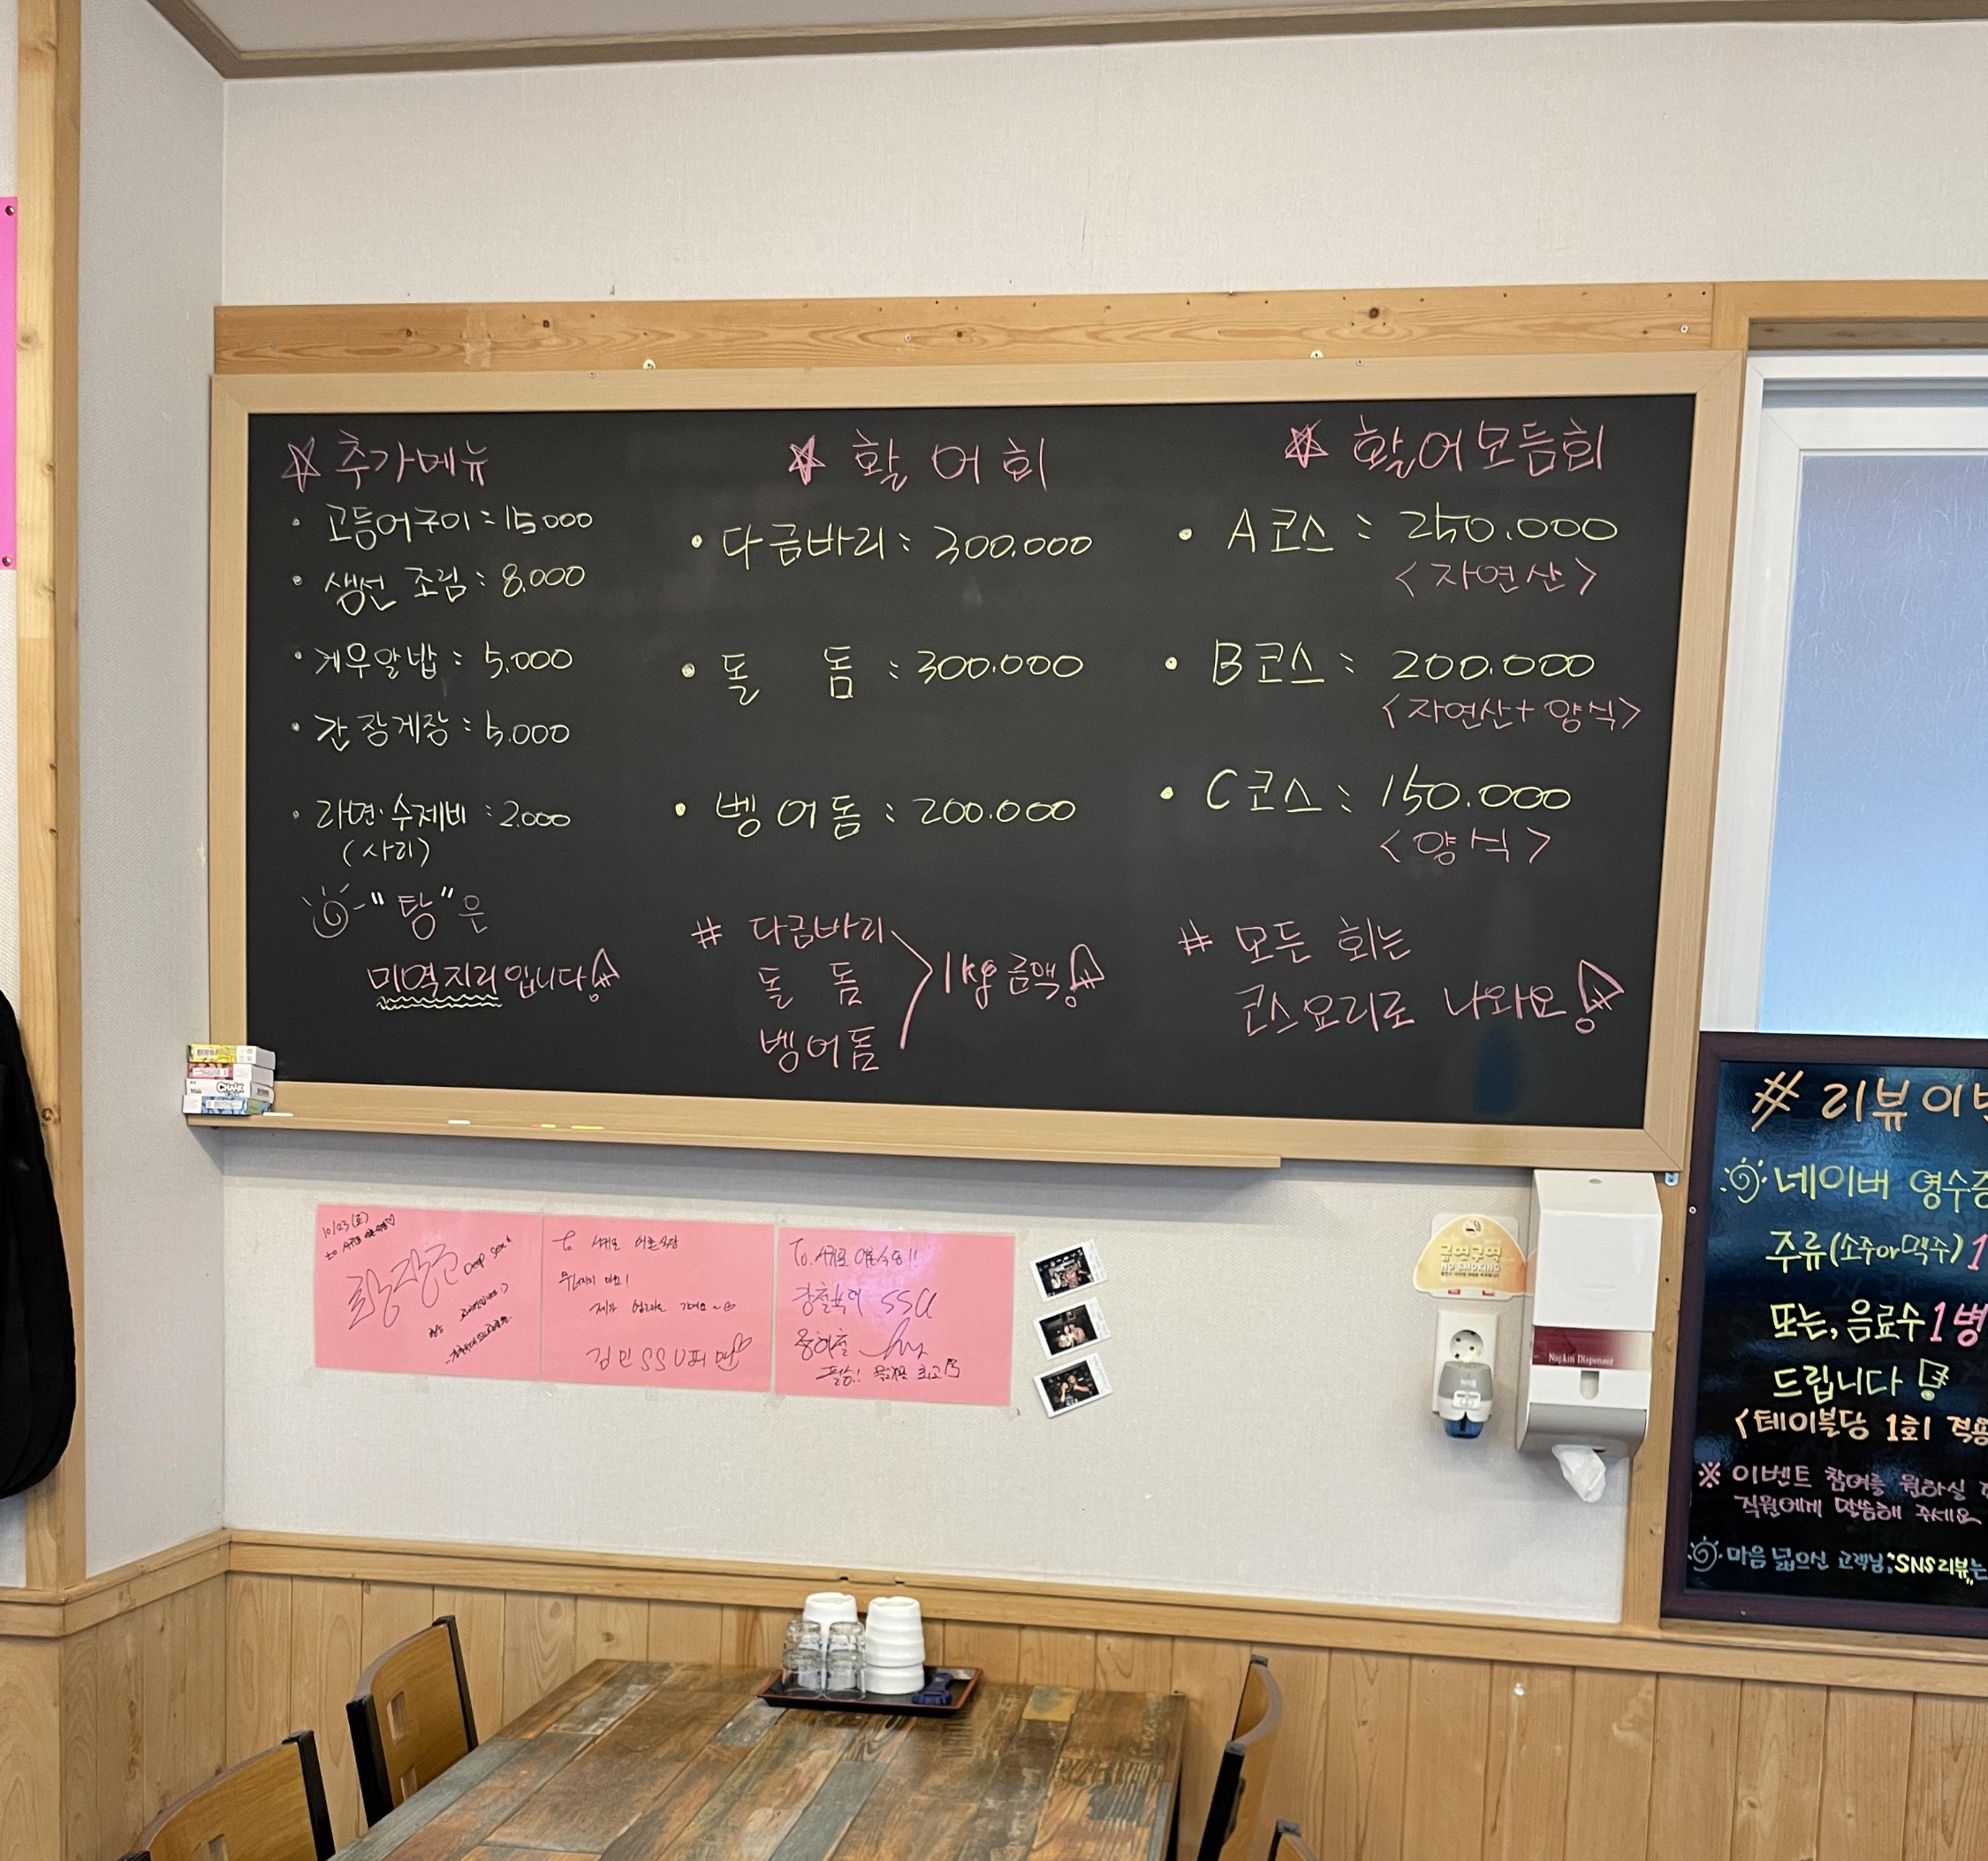 추가메뉴
· 고등어구이 : 15.000
· 생선 조림 : 8.000
· 게우알밥 : 5.000
· 간장게장 : 5.000
· 라면·수제비 : 2.000
(사리)
"탕"은
미역지리입니다!
활어회
· 다금바리 : 300.000
· 돌 돔 : 300.000
· 벵어돔 : 200.000
# 다금바리
돌 돔
벵어돔
1kg 금액!
활어모듬회
· A코스 : 250.000
<자연산>
· B코스 : 200.000
<자연산+양식>
· C코스 : 150.000
<양식>
# 모든 회는
코스요리로 나와요!
CHALK
10/23(토)
to
Deep sea
to 서귀포 어촌식당
김민SSU피디
To. 서귀포 어촌식당!!
SSU
최고
금연구역
NO SMOKING
Napkin Dispenser
# 리뷰 이벤
네이버 영수증
주류(소주or맥주) 1
또는, 음료수 1병
드립니다!
<테이블당 1회 적용
※ 이벤트 참여를 원하실
직원에게 말씀해 주세요
마음 넓으신 고객님, "SNS리뷰"는